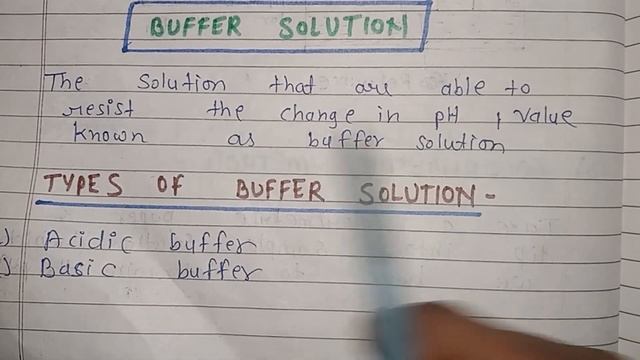 BUFFER SOLUTION
The solution that are able to
resist the change in pH , value
known as buffer solution
TYPES OF BUFFER SOLUTION -
) Acidic buffer
) Basic buffer